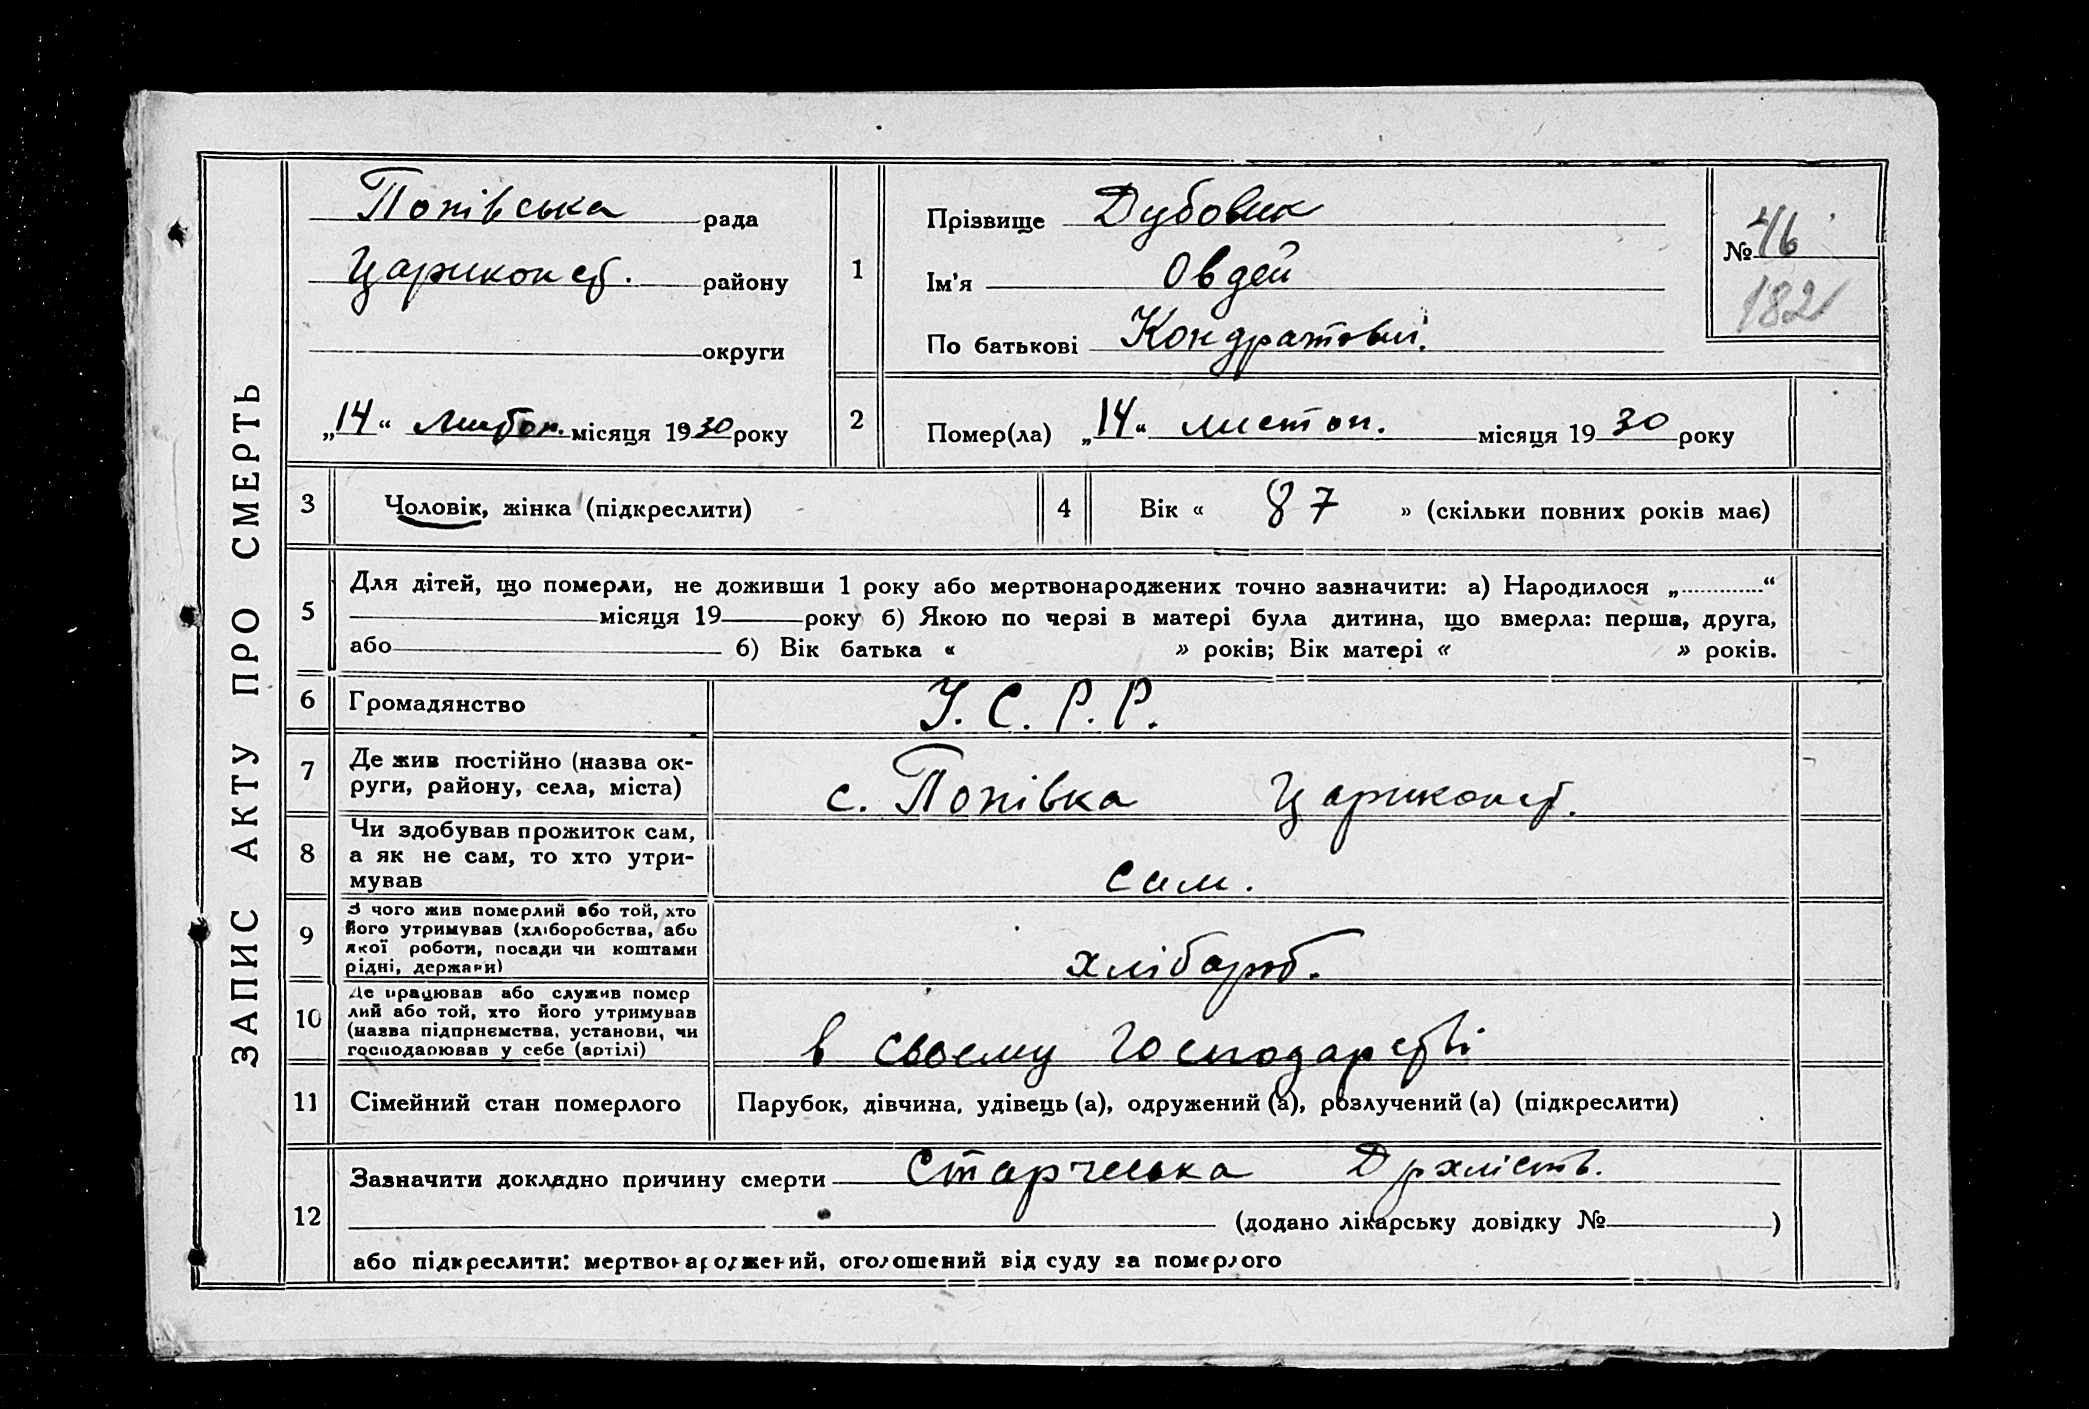 ЗАПИС АКТУ ПРО СМЕРТЬ
Попівська рада
Царикон района
району
округи
„14“ листоп. місяця 1930 року
1
Прізвище Дубовик
Ім'я Овдей
По батькові Кондратович
№ 46
182
2
Помер(ла) „14“ листоп. місяця 19 30 року
3
Чоловік, жінка (підкреслити)
4
Вік « 87 » (скільки повних років має)
5
Для дітей, що померли, не доживши 1 року або мертвонароджених точно зазначити: а) Народилося „ “
місяця 19 року б) Якою по черзі в матері була дитина, що вмерла: перша, друга,
або б) Вік батька « » років; Вік матері « » років.
6
Громадянство У.С.Р.Р.
7
Де жив постійно (назва ок-
руги, району, села, міста) с. Попівка
8
Чи здобував прожиток сам,
а як не сам, то хто утри-
мував сам.
9
З чого жив померлий або той, хто
його утримував (хліборобства, або
якої роботи, посади чи коштами
рідні, держави) хлібороб.
10
Де працював або служив помер
лий або той, хто його утримував
(назва підпрнємства, установи, чи
господарював у себе (артілі) в своєму господарстві
11
Сімейний стан померлого Парубок, дівчина, удівець (а), одружений (а), розлучений (а) (підкреслити)
12
Зазначити докладно причину смерти Старческа Дряхлість.
(додано лікарську довідку № )
або підкреслити: мертвонароджений, оголошений від суду за померлого